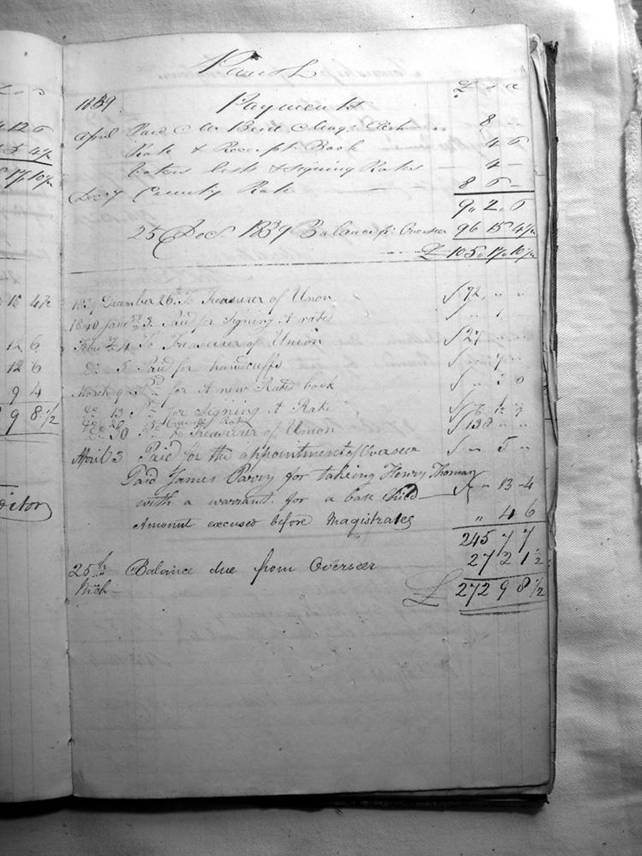 4 12 6
5 4 1/2
17 10 1/2
10 4 1/2
12 6
12 6
9 4
9 8 1/2
Parish
1839 Payments £ s d
April Paid Mr Bird Mag's Clerk 8
Rate & Receipt Book 4 6
Lists & Signing Rates 4 -
County Rate 8 6 -
9 2 6
25 Dec 1839 Balance pr Overseer 96 15 4 1/2
£ 105 17 10 1/2
1839 December 26th To Treasurer of Union 72 " "
1840 Jan 3 Paid for signing a rate
Feby 24 To Treasurer of Union 27 " "
Do 5 Paid for handcuffs
March 9 Pd for A new Rate book
Do 13 Pd for Signing A Rate
County Rate
Do 30 Pd for Treasurer of Union 138 " "
April 3 Paid for the appointment of Overseer " 5 "
Paid James Parry for taking Henry Thomas
with a warrant for a base Child " 13 - 4
Amount excused before Magistrates " 4 6
245 7 7
25th Balance due from Overseer 27 2 1 1/2
Mch
£ 272 9 8 1/2